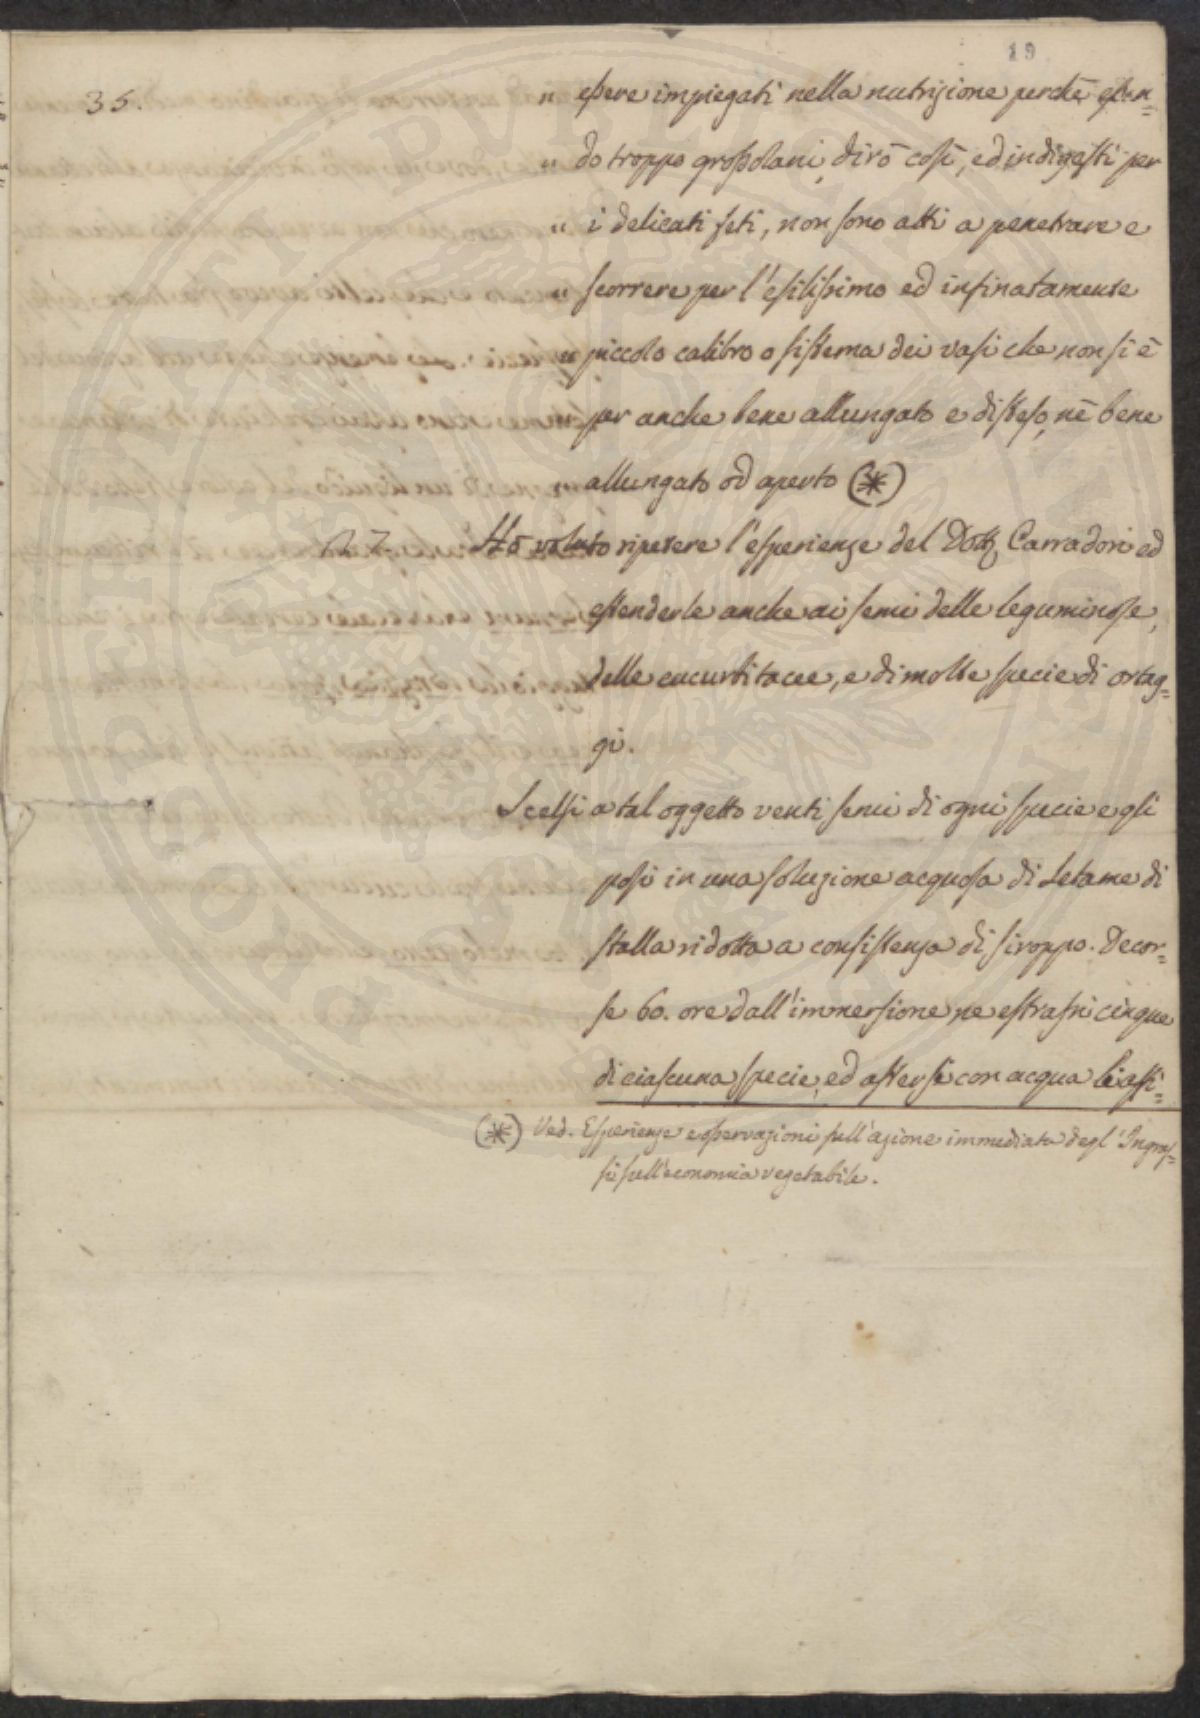 19
35.
" essere impiegati nella nutrizione perchè essen=
" do troppo grossolani, dirò così, ed indigesti per
" i delicati feti, non sono atti a penetrare e
" scorrere per l'esilissimo ed infinatamente
" piccolo calibro o sistema dei vasi che non si è
per anche bene allungato e disteso, nè bene
allungato od aperto (*)
27. Hò voluto ripetere l'esperienze del Dott. Carradori ed
estenderle anche ai semi delle leguminose,
delle cucurbitacee, e di molte specie di ortag=
gi.
Scelsi a tal oggetto venti semi di ogni specie e gli
posi in una soluzione acquosa di letame di
stalla ridotta a consistenza di siroppo. Decor=
se 60. ore dall'immersione ne estrassi cinque
di ciascuna specie, ed astersi con acqua li assi=
(*) Ved. Esperienze e osservazioni sull'azione immediata degl'Ingras=
si sull'economia vegetabile.